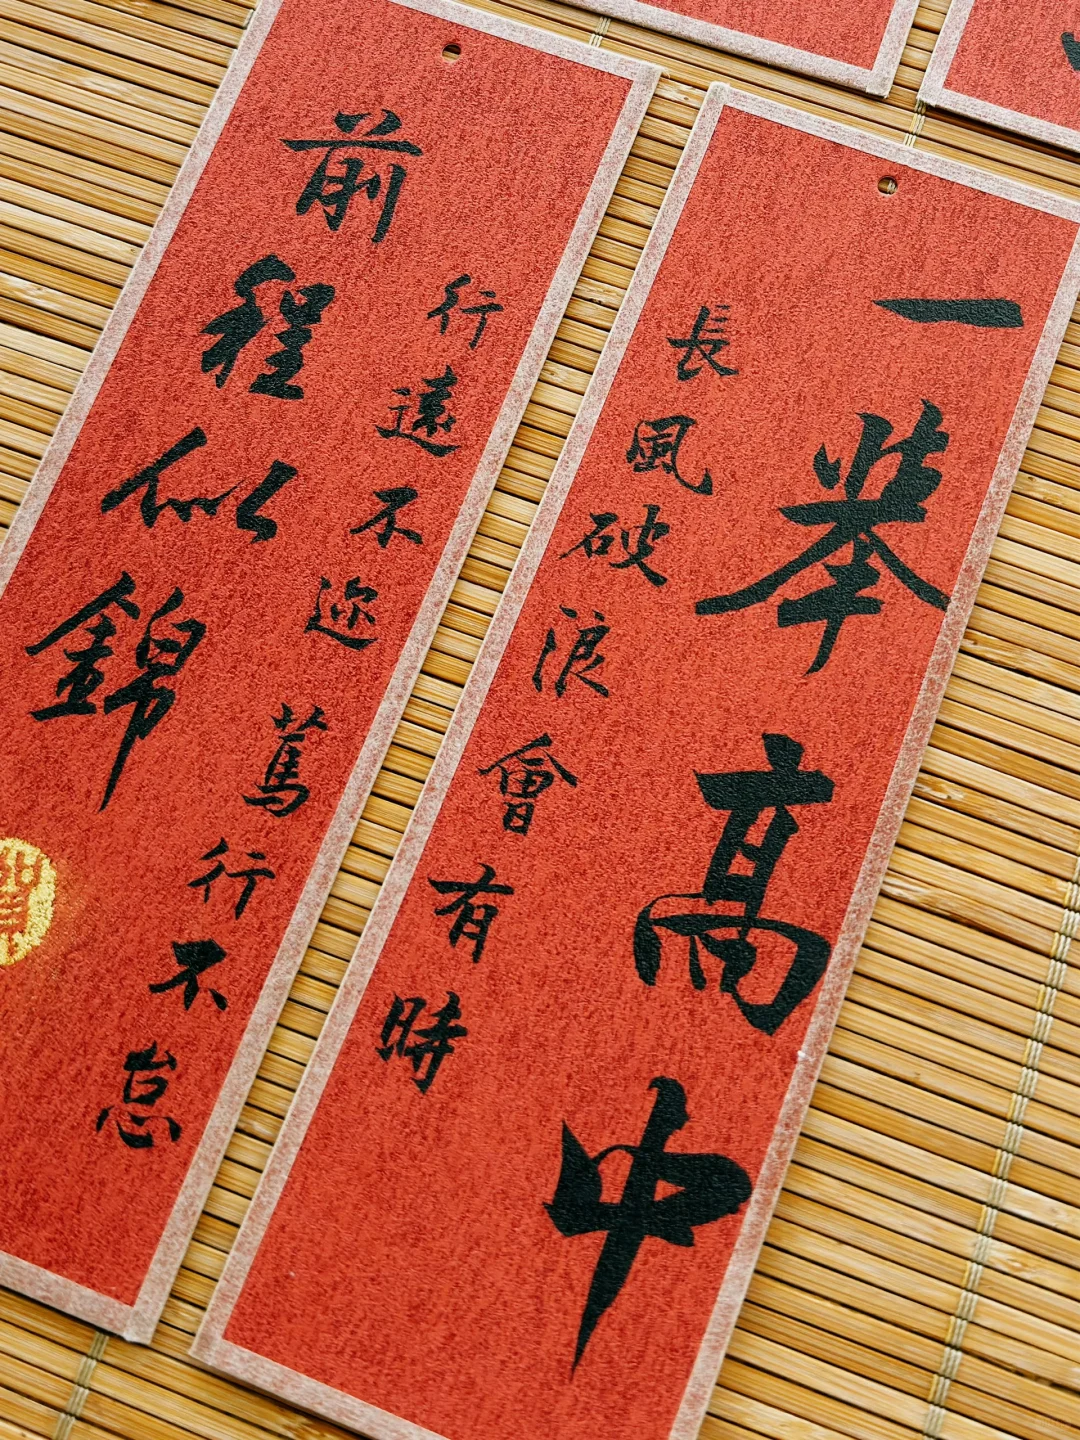 一举高中
長風破浪會有時
行遠不迩篤行不怠
前程似錦